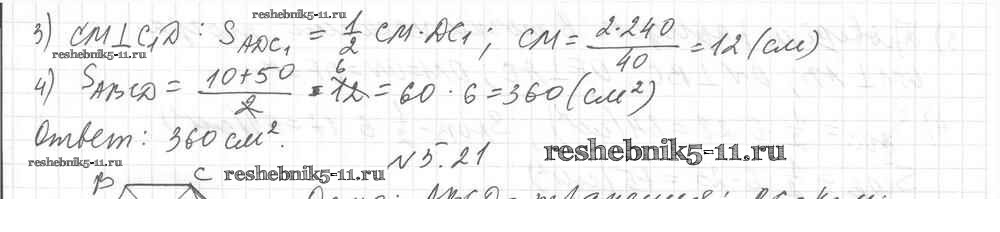 reshebnik5-11.ru
3) CM⊥C₁D : S_ADC₁ = 1/2 CM·DC₁ ; CM = 2·240/40 = 12 (см)
reshebnik5-11.ru
4) S_ABCD = 10+50/2 · 12 6 = 60 · 6 = 360 (см²)
Ответ: 360 см².
N 5.21
reshebnik5-11.ru
reshebnik5-11.ru
B C reshebnik5-11.ru